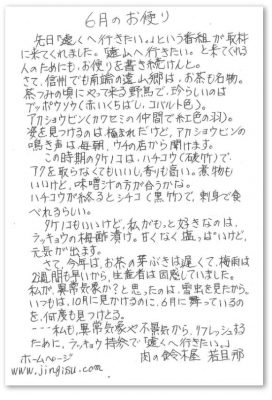 6月のお便り
先日「遠くへ行きたい。」という番組が取材
に来てくれました。「遠山へ行きたい。」と来てくれる
人のためにも、お便りを書き続けんと。
さて、信州でも南端の遠山郷は、お茶も名物。
茶つみの頃にやって来る野鳥で、珍らしいのは
アッポウソウ(赤いくちばし、コバルト色)。
アカショウビン(カワセミの仲間で紅色の羽)。
姿を見つけるのは稀まれだけど、アカショウビンの
鳴き声は毎朝、ウチの店から聞けます。
この時期のタケノコは、ハチコウ(破竹)で、
アクを取らなくてもいいし、香りも高い。煮物も
いいけど、味噌汁の方が合うかな。
ハチコウが終ろうとシチコ(黒竹)で、刺身で食
べれるらしい。
タケノコもいいけど、私がもっと好きなのは、
ラッキョウの梅酢漬け。甘くなく塩っぱいけど、
元気が出ます。
さて、今年は、お茶の芽ぶきは遅くて、梅雨は
2週間も早いから、生産者は困惑していました。
私が、異常気象か?と思ったのは、雪虫を見たから。
いつもは、10月に見かけるのに、6月に舞っているの
を、何度も見つとる。
---私も、異常気象や不景気から、リフレッシュする
ために、ラッキョウ持参で「遠くへ行きたい。」
ホームページ 肉の鈴木屋 若旦那
www.jingisu.com